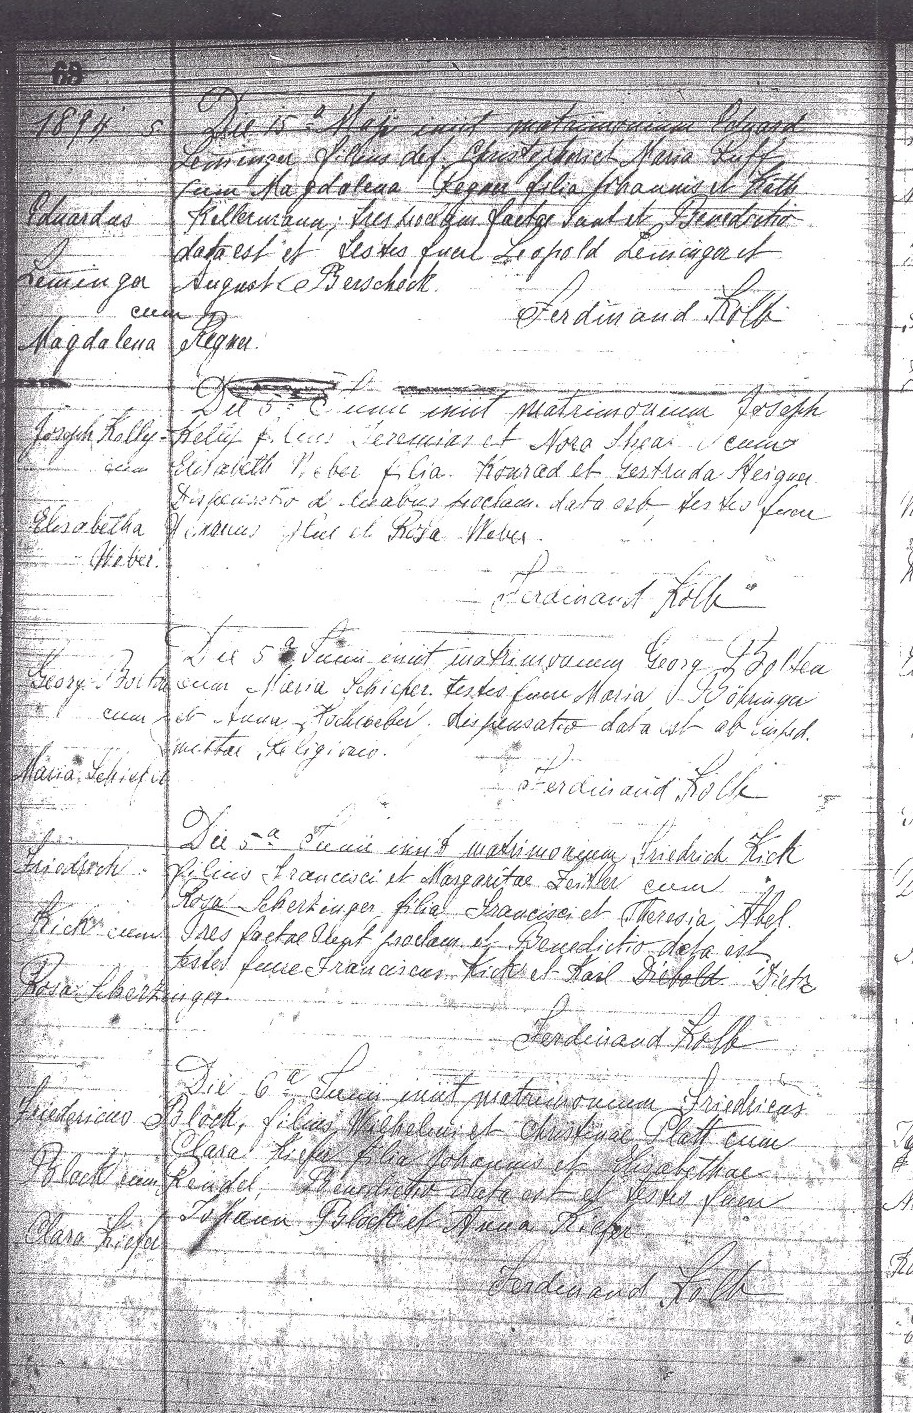 68
1894 5. Die 15ª Maji iniit matrimonium Eduard
Leminger filius def. Christophori et Maria Ruff
cum Magdalena Regner filia Johannis et Kath
Eduardus Kellermann; tres proclam factae sunt et Benedictio
data est et testes fuere Leopold Leminger et
Leminger August Berschock.
cum Ferdinand Kolb
Magdalena Regner.
Die 5ª Junii iniit matrimonium Joseph
Joseph Kelly- Kelly filius Jeremias et Nora Shea cum
cum Elisabeth Weber filia Konrad et Gertruda Heigner
Dispensatio a duabus proclam. data est, testes fuere
Elisabetha et Rosa Weber.
Weber.
Ferdinand Kolb
Die 5ª Junii iniit matrimonium Georg Bolten
Georg cum Maria Schiefer. testes fuere Maria Böhringer
cum et Anna Kochweber. dispensatio data est ab imped.
mixtae Religionis.
Maria Schiefer Ferdinand Kolb
Die 5ª Junii iniit matrimonium Friedrich Kick
Friedrich filius Francisci et Margaritae Zeitler cum
Rosa Scherzinger filia Francisci et Theresia Abel.
Kick cum Tres factae sunt proclam. et Benedictio data est
testes fuere Franciscus Kick et Karl Diebold Dietz
Rosa Scherzinger.
Ferdinand Kolb
Die 6ª Junii iniit matrimonium Friedricus
Fridericus Block, filius Wilhelmi et Christinae Platt cum
Clara Kiefer filia Johannis et Elisabethae
Block cum Rempel, Benedictio data est et testes fuere
Johann Block et Anna Kiefer
Clara Kiefer
Ferdinand Kolb